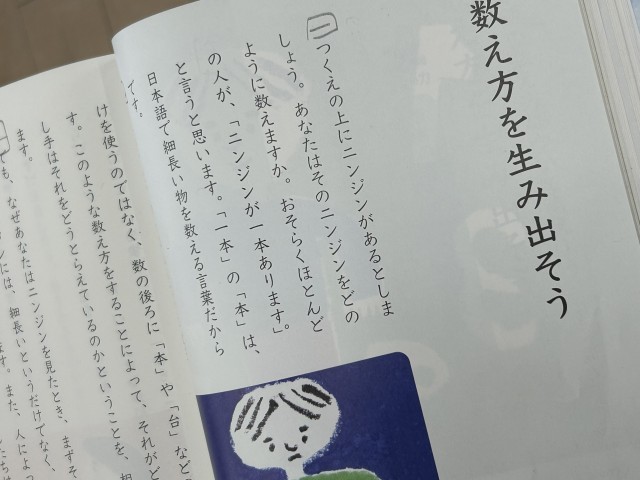 数え方を生み出そう
一
つくえの上にニンジンがあるとしま
しょう。あなたはそのニンジンをどの
ように数えますか。おそらくほとんど
の人が、「ニンジンが一本あります」
と言うと思います。「一本」の「本」は、
日本語で細長い物を数える言葉だから
です。
けを使うのではなく、数の後ろに「本」や「台」など
す。このような数え方をすることによって、それがど
し手はそれをどうとらえているのかということを、
ます。
でも、なぜあなたはニンジンを見たとき、まずそ
には、細長いというだけでなく、
ます。また、人によっ